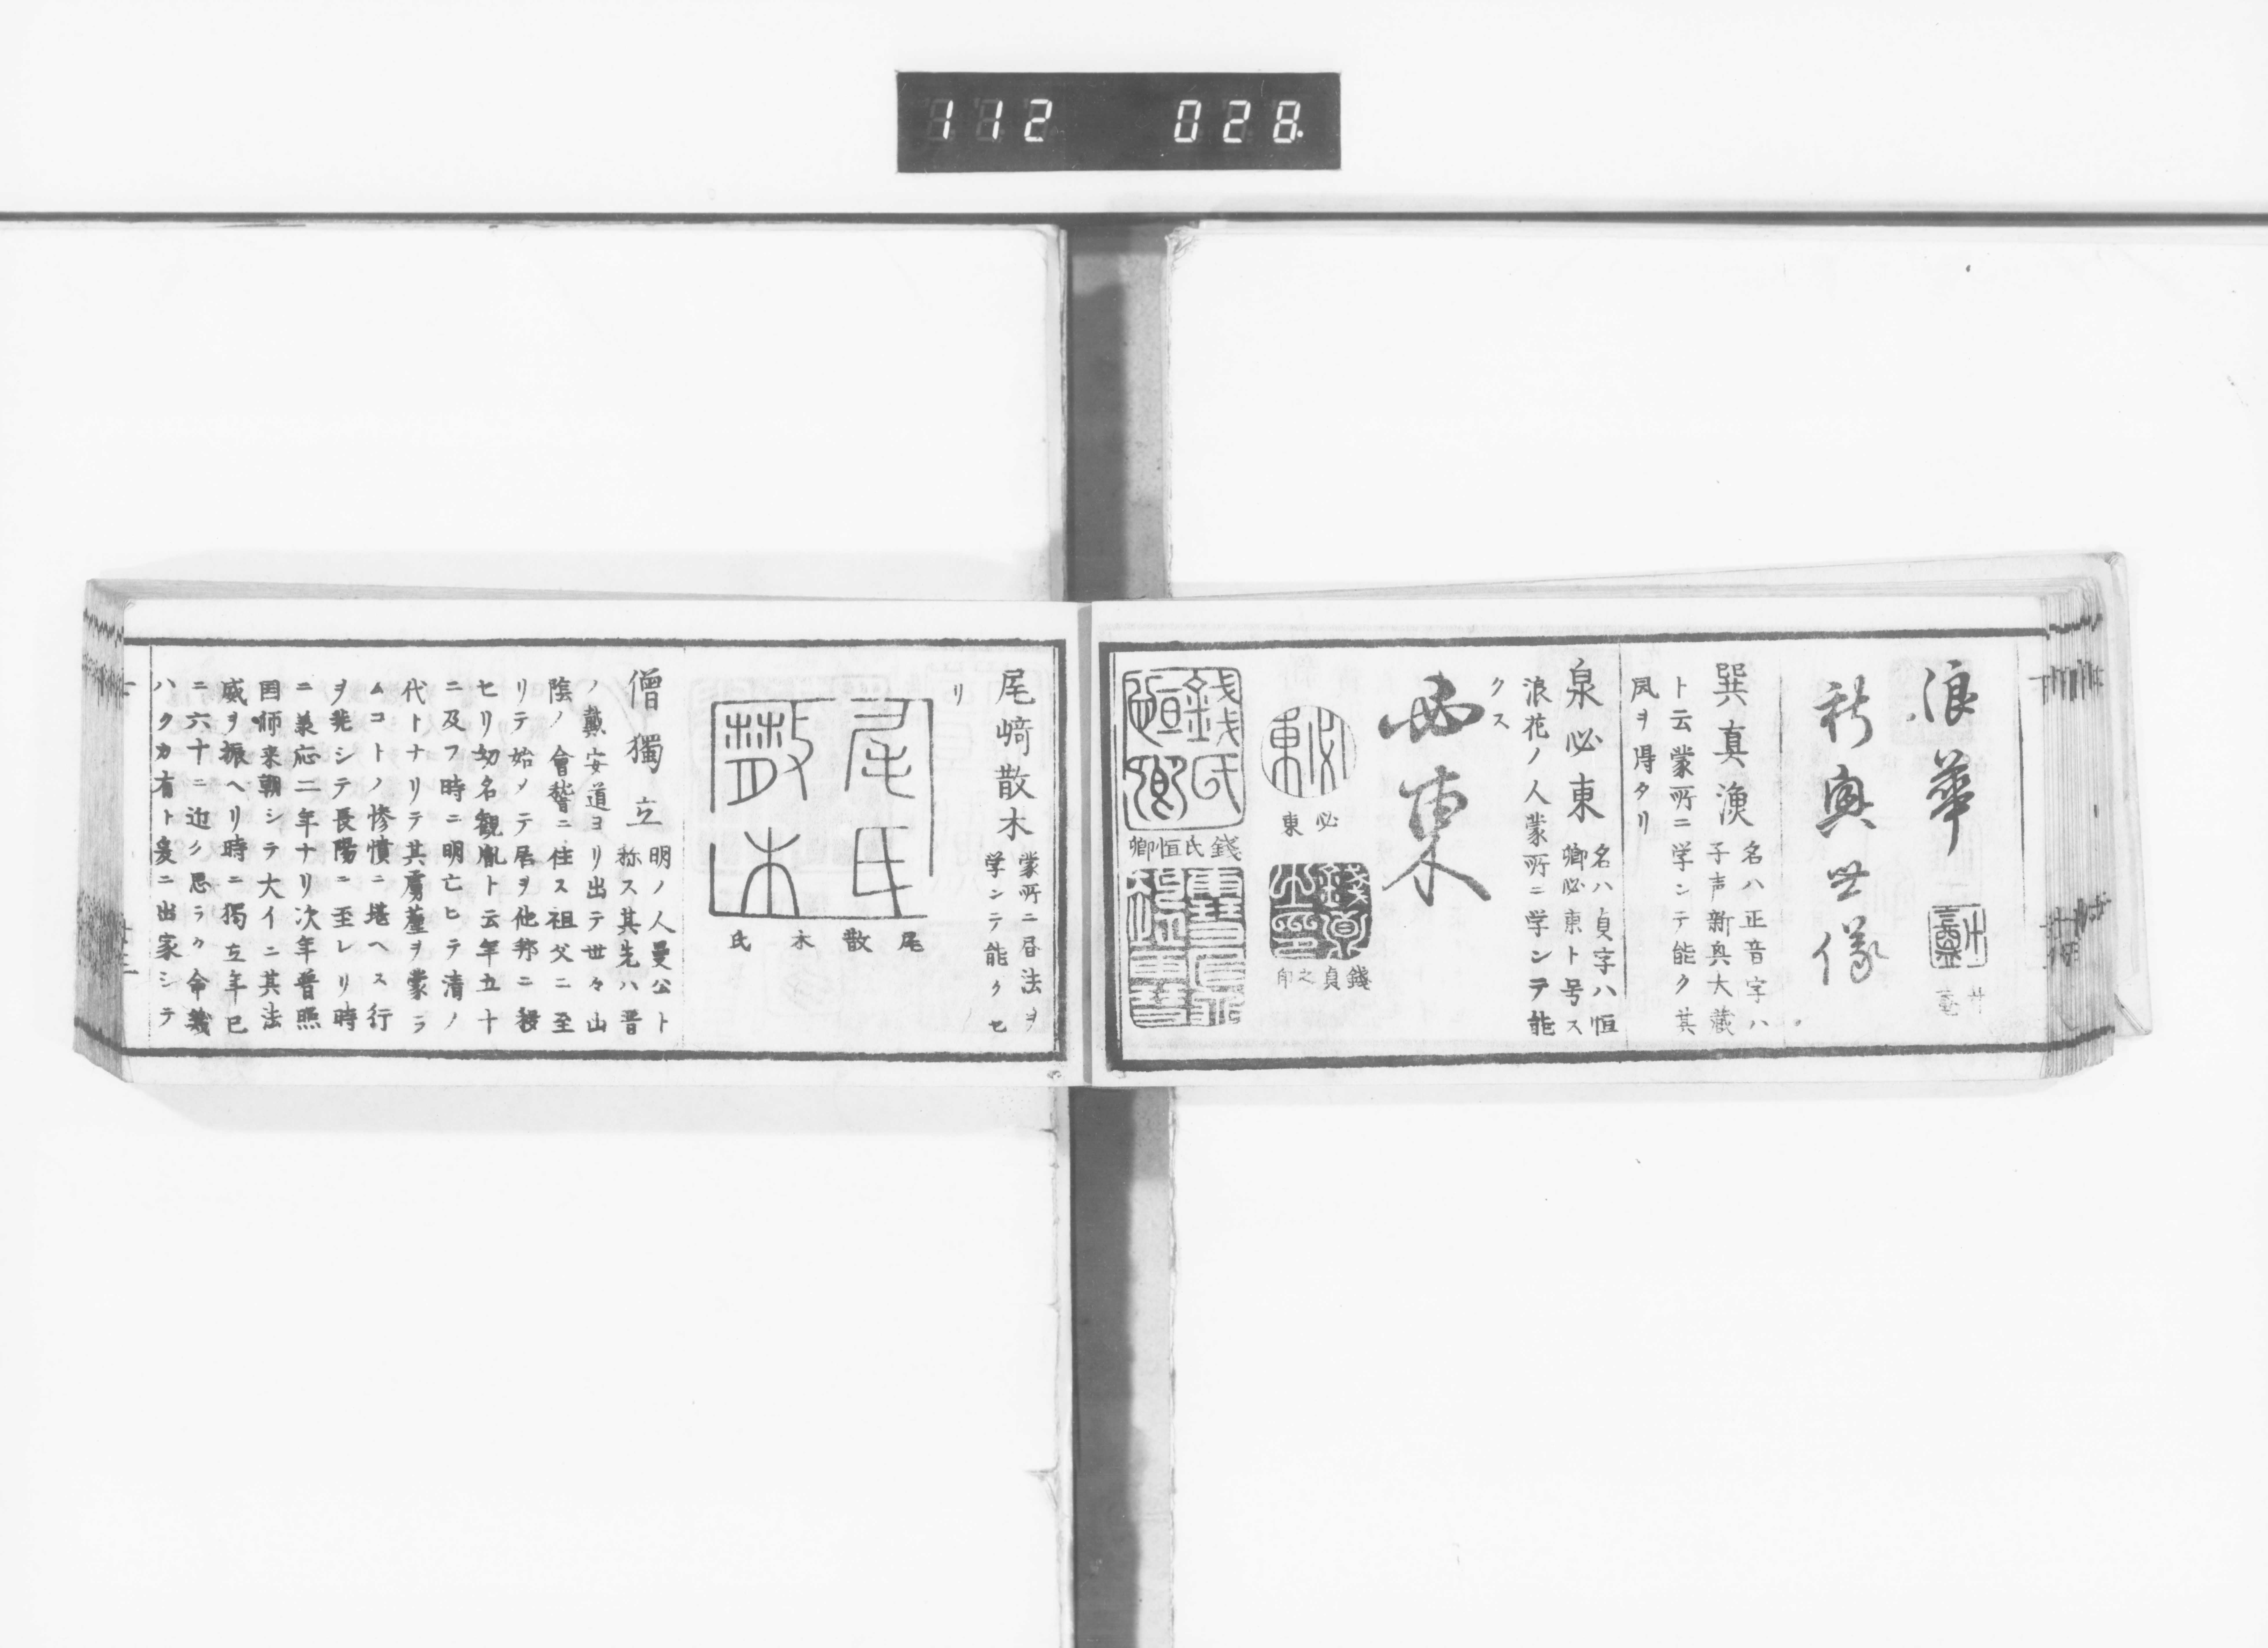 112 028
浪華
新興世儀
巽真漁 名ハ正音字ハ
子声新興大蔵
ト云蒙所ニ学ンテ能ク其
風ヲ得タリ
泉必東 名ハ貞字ハ恒
卿必東ト号ス
浪花ノ人蒙所ニ学ンヲ能
クス
必東
必東
錢貞之印
錢氏恒卿
尾﨑散木 蒙所ニ昼法ヲ
学ンテ能クセ
リ
尾散木氏
僧獨立 明ノ人曼公ト
称ス其先ハ晋
ノ戴安道ヨリ出テ世々山
陰ノ會稽ニ住ス祖父ニ至
リテ始メテ居ヲ他邦ニ移
セリ幼名觀胤ト云年五十
ニ及フ時ニ明亡ヒテ清ノ
代トナリテ其虜塵ヲ蒙ラ
ムコトノ惨憤ニ堪ヘス行
ヲ発シテ長陽ニ至レリ時
ニ承応二年ナリ次年普照
国師来朝シテ大イニ其法
威ヲ振ヘリ時ニ獨立年已
ニ六十ニ迫ク思ラク命幾
ハクカ有ト爰ニ出家シテ